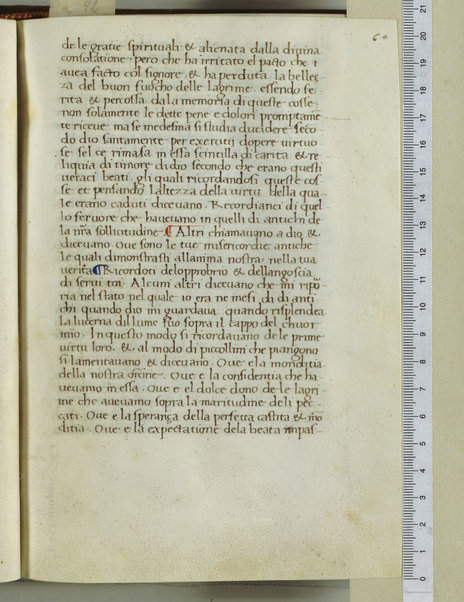 60
de le gratie spirituali & alienata dalla diuina
consolatione · pero che ha irritato el pacto che i
auea facto col signore · & ha perduta la belles
za del buon fuocho delle lagrime · essendo fe
rita & percossa dala memoria di queste cose ·
non solamente le dette pene e dolori promptame͂
te riceue · ma se medesima si studia ducidere seco
do dio santamente per exercitij dopere uirtuo
se · sel ce rimasa in essa scintilla di carita & re
liquia di timore di dio secondo che erano questi
ueraci beati · gli quali ricordandosi queste cos
se et pensando laltezza della uirtu della qua
le erano caduti diceuano · Ricordianci di quel
lo feruore che haueuano in quelli di antichi de
la nr̃a sollicitudine · ¶ Altri chiamauano a dio &
diceuano · Oue sono le tue misericordie antiche
le quali dimonstrasti allanima nostra nella tua
uerita ¶ Ricordoti delopprobrio & dellangoscia
di serui toi · Alcuni altri diceuano che mi ripo
ria nel stato nel quale io era ne mesi di di anti
chi quando dio mi guardaua · quando risplendea
la lucerna dil lume suo sopra il cappo del chuor
mio · In questo modo si ricordauano de le prime
uirtu loro · & al modo di piccollini che piangono
si lamentauano & diceuano · Oue e la monditia
della nostra orõne · Oue e la confidentia che ha
ueuamo in essa · Oue e el dolce dono de le lagri
me che aueuamo sopra la maritudine deli pec
cati · Oue e la speranza della perfetta castita & mõ
ditia · Oue e la expectatione dela beata inpas